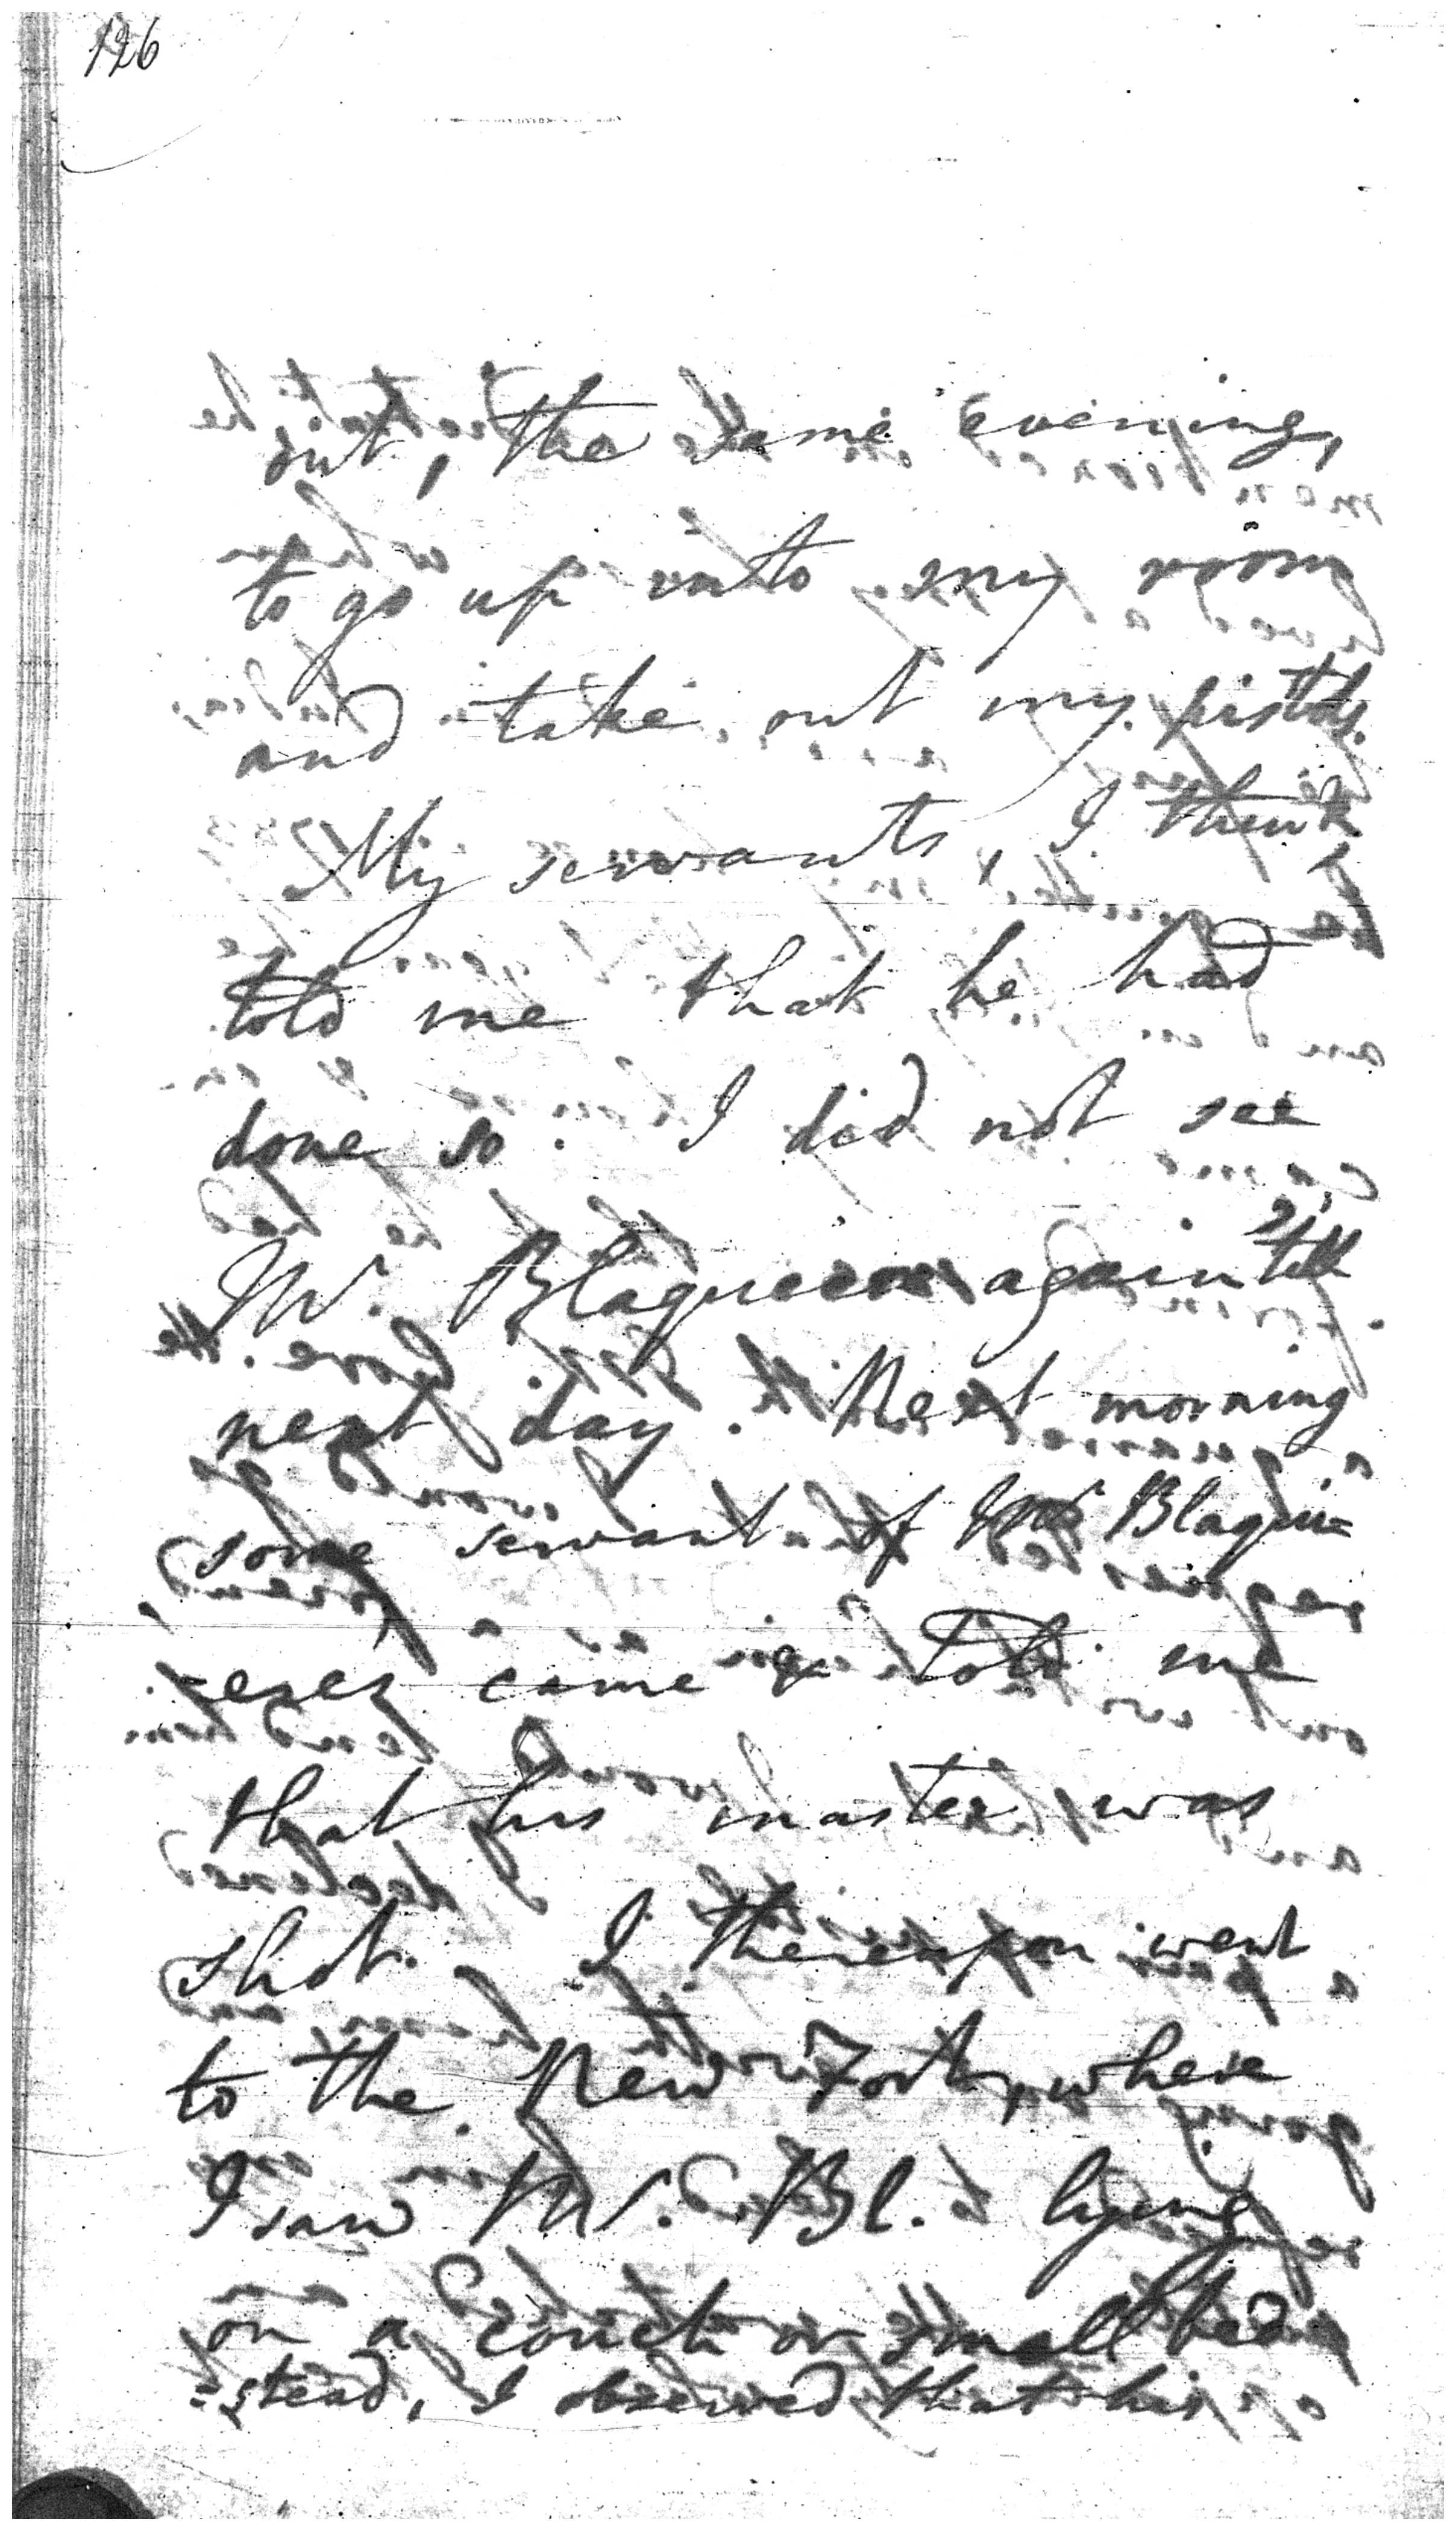 126
but, the same evening,
to go up into my room
and take out my pistols.
My servants, I think
told me that he had
done so. I did not see
Mr. Blaquiere again till
next day. Next morning
some servant of Mr Blaqui=
=eres came & told me
that his master was
shot. I thereupon went
to the New Fort, where
I saw Mr. Bl. lying
on a couch or small bed
=stead, I observed that his